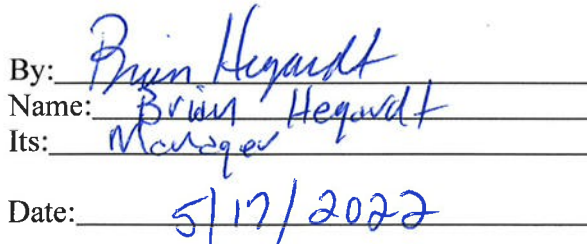 By: Brian Hegardt
Name: Brian Hegardt
Its: Manager
Date: 5/17/2022